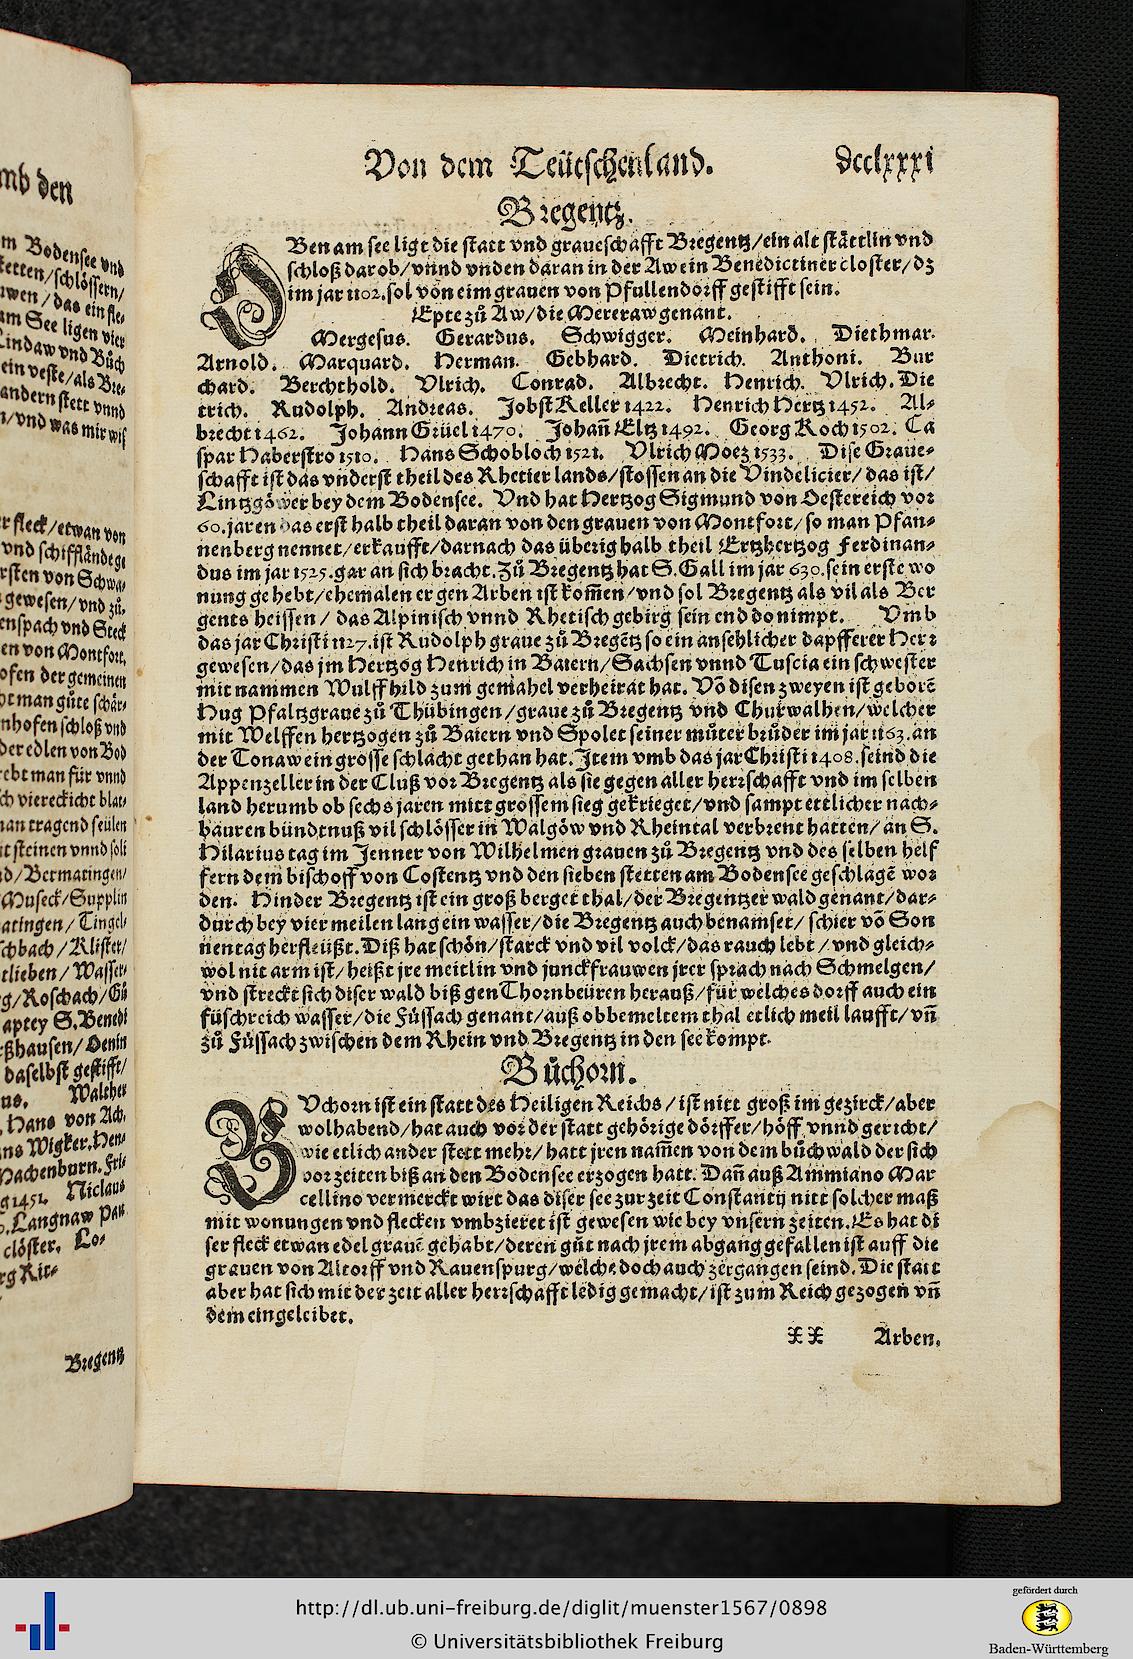 mb den
m Bodensee vnd
ketten/schlössern/
uwen/das ein fle-
am See ligen vier
Lindaw vnd Bůch
ein veste/als Bre-
andern stett vnnd
n/vnd was mir wis
r fleck/etwan von
vnd schifflände ge
rsten von Schwa-
gewesen/vnd zů,
enspach vnd Steck
en von Montfort,
ofen der gemeinen
ht man gůte schär-
nhofen schloß vnd
der edlen von Bod
rebt man für vnnd
ch viereckicht blat-
man tragend seülen
it steinen vnnd soli
nd/Bermatingen/
Museck/Supplin
atingen/Tingel-
schbach/Klister/
tlieben/Wasser-
g/Roschach/Gü
aptey S. Benedi
rßhausen/Oenin
daselbst gestifft/
us. Walther
. Hans von Ach.
ns Wigker. Hen-
Nachenburn. Fri-
g 1451. Niclaus
o. Langnaw Pau
clöster. Lo-
rg Rit-
Bregentz
Von dem Teütschenland. dcclxxxi
Bregentz.
OBen am see ligt die statt vnd graueschafft Bregentz/ein alt stättlin vnd
schloß darob/vnnd vnden daran in der Aw ein Benedictiner closter/dz
im jar 1102. sol von eim grauen von Pfullendorff gestifft sein.
Epte zů Aw/die Mereraw genant.
Mergesus. Gerardus. Schwigger. Meinhard. Diethmar.
Arnold. Marquard. Herman. Gebhard. Dietrich. Anthoni. Bur
chard. Berchthold. Vlrich. Conrad. Albrecht. Henrich. Vlrich. Die
trich. Rudolph. Andreas. Jobst Keller 1422. Henrich Hertz 1452. Al-
brecht 1462. Johann Grüel 1470. Johañ Eltz 1492. Georg Koch 1502. Ca
spar Haberstro 1510. Hans Schobloch 1521. Vlrich Moez 1533. Dise Graue-
schafft ist das vnderst theil des Rhetier lands/stossen an die Vindelicier/das ist/
Lintzgöwer bey dem Bodensee. Vnd hat Hertzog Sigmund von Oestereich vor
60. jaren das erst halb theil daran von den grauen von Montfort/so man Pfan-
nenberg nennet/erkaufft/darnach das überig halb theil Ertzhertzog Ferdinan-
dus im jar 1525. gar an sich bracht. Zů Bregentz hat S. Gall im jar 630. sein erste wo
nung gehebt/ehemalen er gen Arben ist kom̃en/vnd sol Bregentz als vil als Ber
gents heissen/das Alpinisch vnnd Rhetisch gebirg sein end do nimpt. Vmb
das jar Christi 1127. ist Rudolph graue zů Bregētz so ein ansehlicher dapfferer Herr
gewesen/das jm Hertzog Henrich in Baiern/Sachsen vnnd Tuscia ein schwester
mit nammen Wulffhild zum gemahel verheirat hat. Vō disen zweyen ist geborē
Hug Pfaltzgraue zů Thübingen/graue zů Bregentz vnd Churwalhen/welcher
mit Welffen hertzogen zů Baiern vnd Spolet seiner můter brůder im jar 1163. an
der Tonaw ein grosse schlacht gethan hat. Item vmb das jar Christi 1408. seind die
Appenzeller in der Cluß vor Bregentz als sie gegen aller herrschafft vnd im selben
land herumb ob sechs jaren mitt grossem sieg gekrieget/vnd sampt ettlicher nach-
bauren bündtnuß vil schlösser in Walgöw vnd Rheintal verbrent hatten/an S.
Hilarius tag im Jenner von Wilhelmen grauen zů Bregentz vnd des selben helf
fern dem bischoff von Costentz vnd den sieben stetten am Bodensee geschlagē wor
den. Hinder Bregentz ist ein groß berget thal/der Bregentzer wald genant/dar-
durch bey vier meilen lang ein wasser/die Bregentz auch benamset/schier vō Son
nentag herfleüßt. Diß hat schön/starck vnd vil volck/das rauch lebt/vnd gleich-
wol nit arm ist/heißt jre meitlin vnd junckfrauwen jrer sprach nach Schmelgen/
vnd streckt sich diser wald biß gen Thornbeüren herauß/für welches dorff auch ein
füschreich wasser/die Füssach genant/auß obbemeltem thal etlich meil laufft/vñ
zů Füssach zwischen dem Rhein vnd Bregentz in den see kompt.
Bůchorn.
BVchorn ist ein statt des Heiligen Reichs/ist nitt groß im gezirck/aber
wolhabend/hat auch vor der statt gehörige dörffer/höff vnnd gericht/
wie etlich ander stett mehr/hatt jren nam̃en von dem bůchwald der sich
vor zeiten biß an den Bodensee erzogen hatt. Dañ auß Ammiano Mar
cellino vermerckt wirt das diser see zur zeit Constantij nitt solcher maß
mit wonungen vnd flecken vmbzieret ist gewesen wie bey vnsern zeiten. Es hat di
ser fleck etwan edel grauē gehabt/deren gůt nach jrem abgang gefallen ist auff die
grauen von Altorff vnd Rauenspurg/welche doch auch zergangen seind. Die statt
aber hat sich mit der zeit aller herrschafft ledig gemacht/ist zum Reich gezogen vñ
dem eingeleibet.
XX Arben.
http://dl.ub.uni-freiburg.de/diglit/muenster1567/0898
© Universitätsbibliothek Freiburg
gefördert durch
Baden-Württemberg